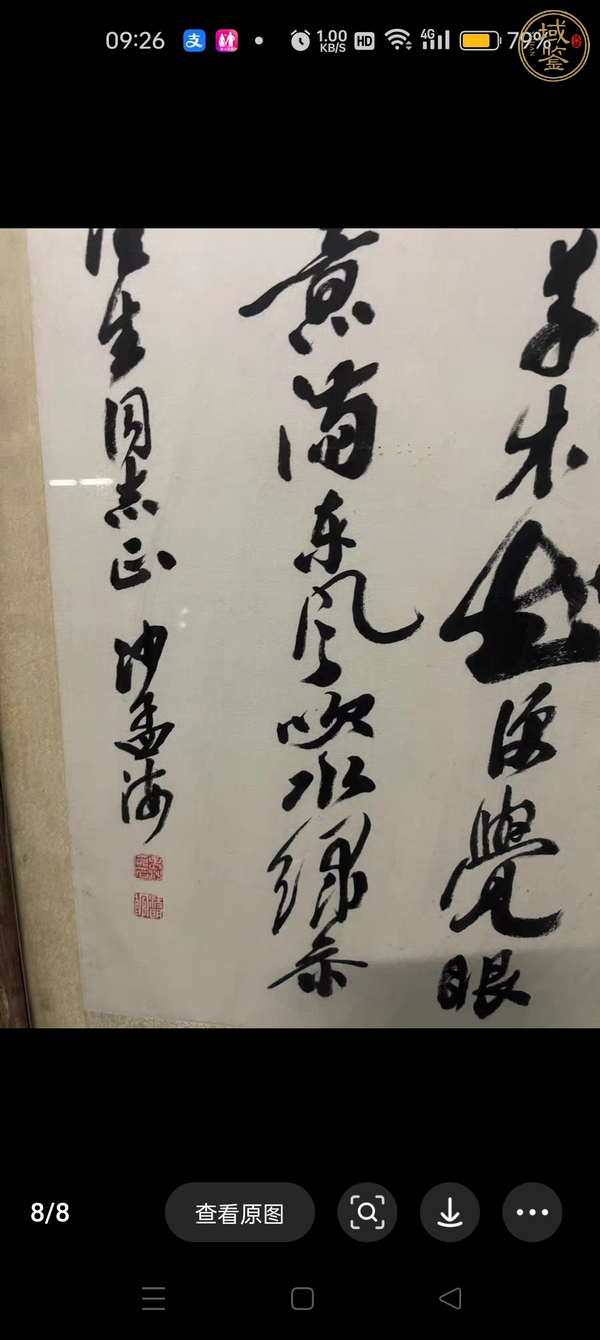 09:26 支 1.00 KB/S HD 4G 79%
域鉴
草木知便覺眼
意满东风吹水绿参
生同志正 沙孟海
8/8 查看原图